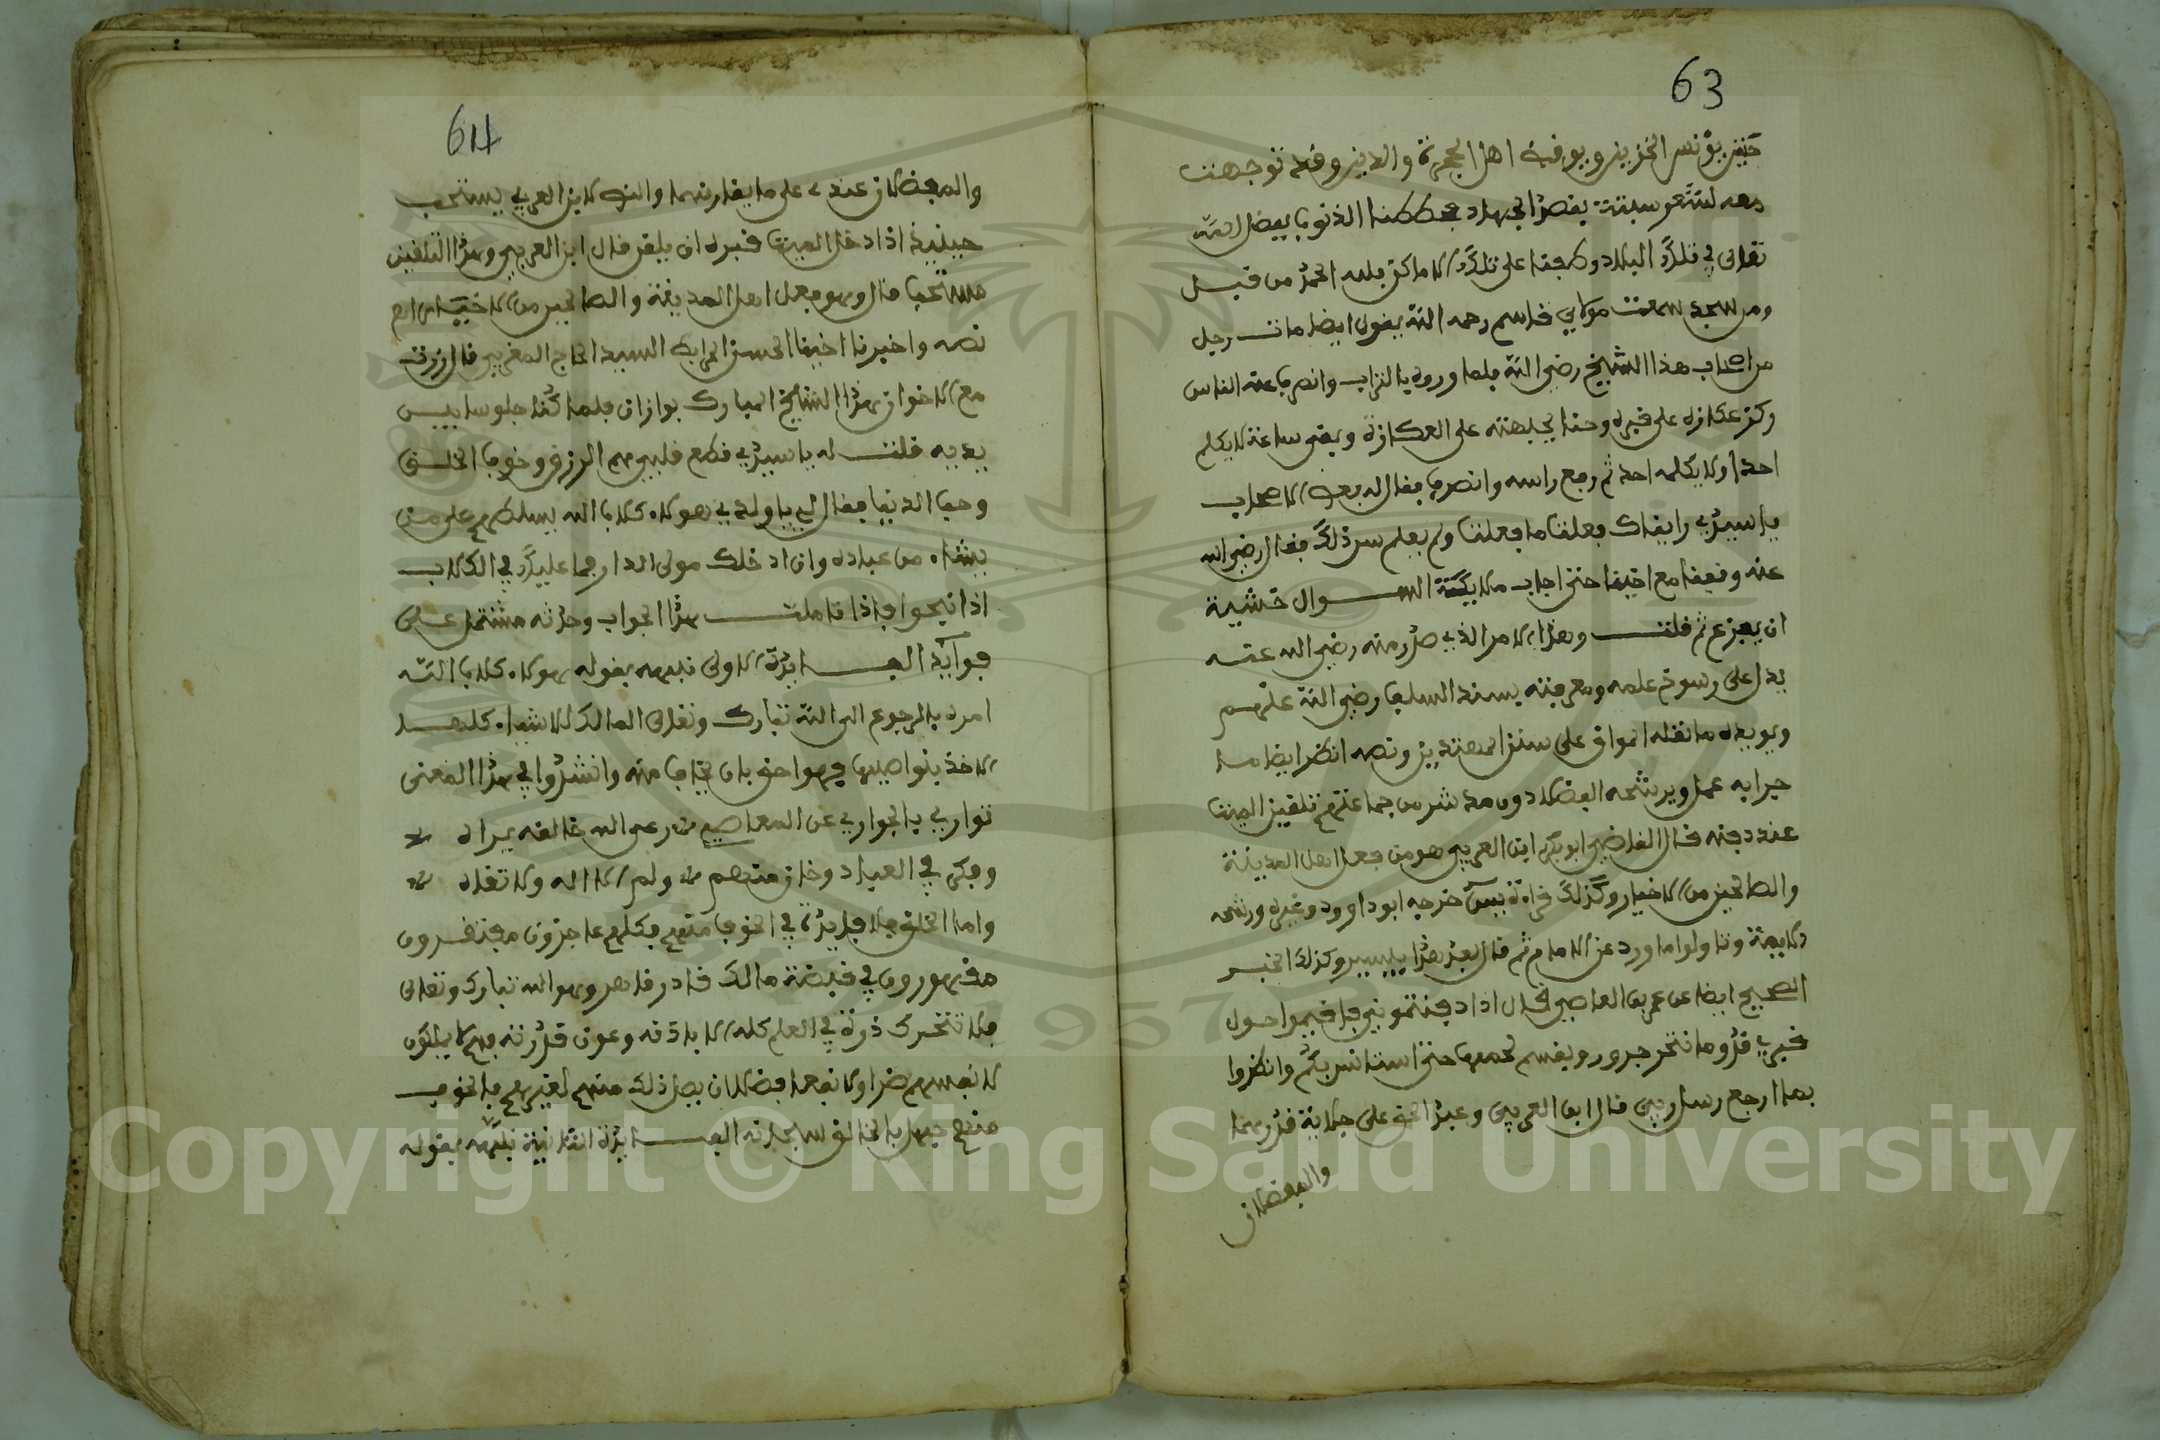 63
حنين يؤنس الحزين ويوقظ اهل الحجرة والدين وقد توجهت
معه لثغر سبتة بقصد الجهاد فحططنا الذنوب بفضل الله
تعلى في تلك البلاد وطبعنا على تلك الاماكن فلله الحمد من قبل
ومن بعد سمعت مولاي قاسم رحمه الله يقول ايضا مات رجل
من اصحاب هذا الشيخ رضي الله فلما وروه بالتراب وانصرف عنه الناس
ركز عكازه على قبره وحنا بجبهته على العكازة وبقي ساعة لا يكلم
احدا ولا يكلمه احد ثم رفع راسه وانصرف فقال له بعض الاصحاب
يا سيدي رايناك فعلت ما فعلت ولم نعلم سر ذلك فقال رضي الله
عنه وقفنا مع اخينا حتى اجاب ملايكة الســوال خشية
ان يفزع ثم قلت وهذا الامر الذي صدر منه رضي الله عنه
يدل على رسوخ علمه ومعرفته بسند السلف رضي الله عنهم
ويويده ما نقله المواق على سنن المهتدين ونصه انظر ايضا ما
جرا به عمل ويرشحه الفضلا دون مدشر من جماعتهم تلقين الميت
عند دفنه قال القاضي ابو بكر ابن العربي هو من فعل اهل المدينة
والصالحين من الاخيار وكذلك قراءة يس خرجه ابو داوود وغيره ورشحه
الايمة وتاولوا ما ورد عن الامام ثم قال بعد هذا بيسير وكذلك الخبر
الصحيح ايضا عن عمرو بن العاصي قال اذا دفنتموني فاقيموا حول
قبري قدر ما تنحر جزور ويقسم لحمها حتى استانس بكم وانظروا
بما ارجع رسل ربي قال ابن العربي وعبد الحق على جلالة قدرهما
والبعضلان
64
والبعضلان عندي على ما يقارنهما والنص لابن العربي يستحب
حينيذ اذا دخل الميت قبره ان يلقن قال ابن العربي وهذا التلقين
مستحب قال وهو فعل اهل المدينة والصالحين من الاخيار اهـ
نصه واخبرنا اخينا الحسن المرابط السيد الحاج المغربي قال زرت
مع الاخوان هذا الشيخ المبارك بوازان فلما كنا جلوسا بين
يديه قلت له يا سيدي قطع قلبي هم الرزق وخوف الخلق
وحب الدنيا فقال لي يا ولدي هولاء كلاب الله يسلطهم على من
يشاء من عباده وان ادخلك مولى الدار فما عليك في الكلاب
اذا نبحوا فاذا تاملت هذا الجواب وجدته مشتمل على
فوايد الفــايدة الاولى نبهه بقوله هولاء كلاب الله
امره بالرجوع الى الله تبارك وتعلى المالك للاشياء كلها
الاخذ بنواصيها فهو احق بان يخاف منه وانشدوا في هذا المعنى
تواري بالجواري عن المعاصي وعين الله خالقه يراه
وفكر في العباد وخاف منهم ولم الا اله ولا تقاه
واما الخلق فلا فايدة في الخوف منهم فكلهم عاجزون مفتقرون
مقهورون في قبضة مالك قادر قاهر وهو الله تبارك وتعلى
فلا تتحرك ذرة في العلم كله الا باذنه وعون قدرته فهم لا يملكون
لانفسهم ضرا ولا نفعا فضلا ان يصل ذلك منهم لغيرهم فالخوف
منهم جهل بالخالق سبحانه الفــايدة الثانية نبهه بقوله